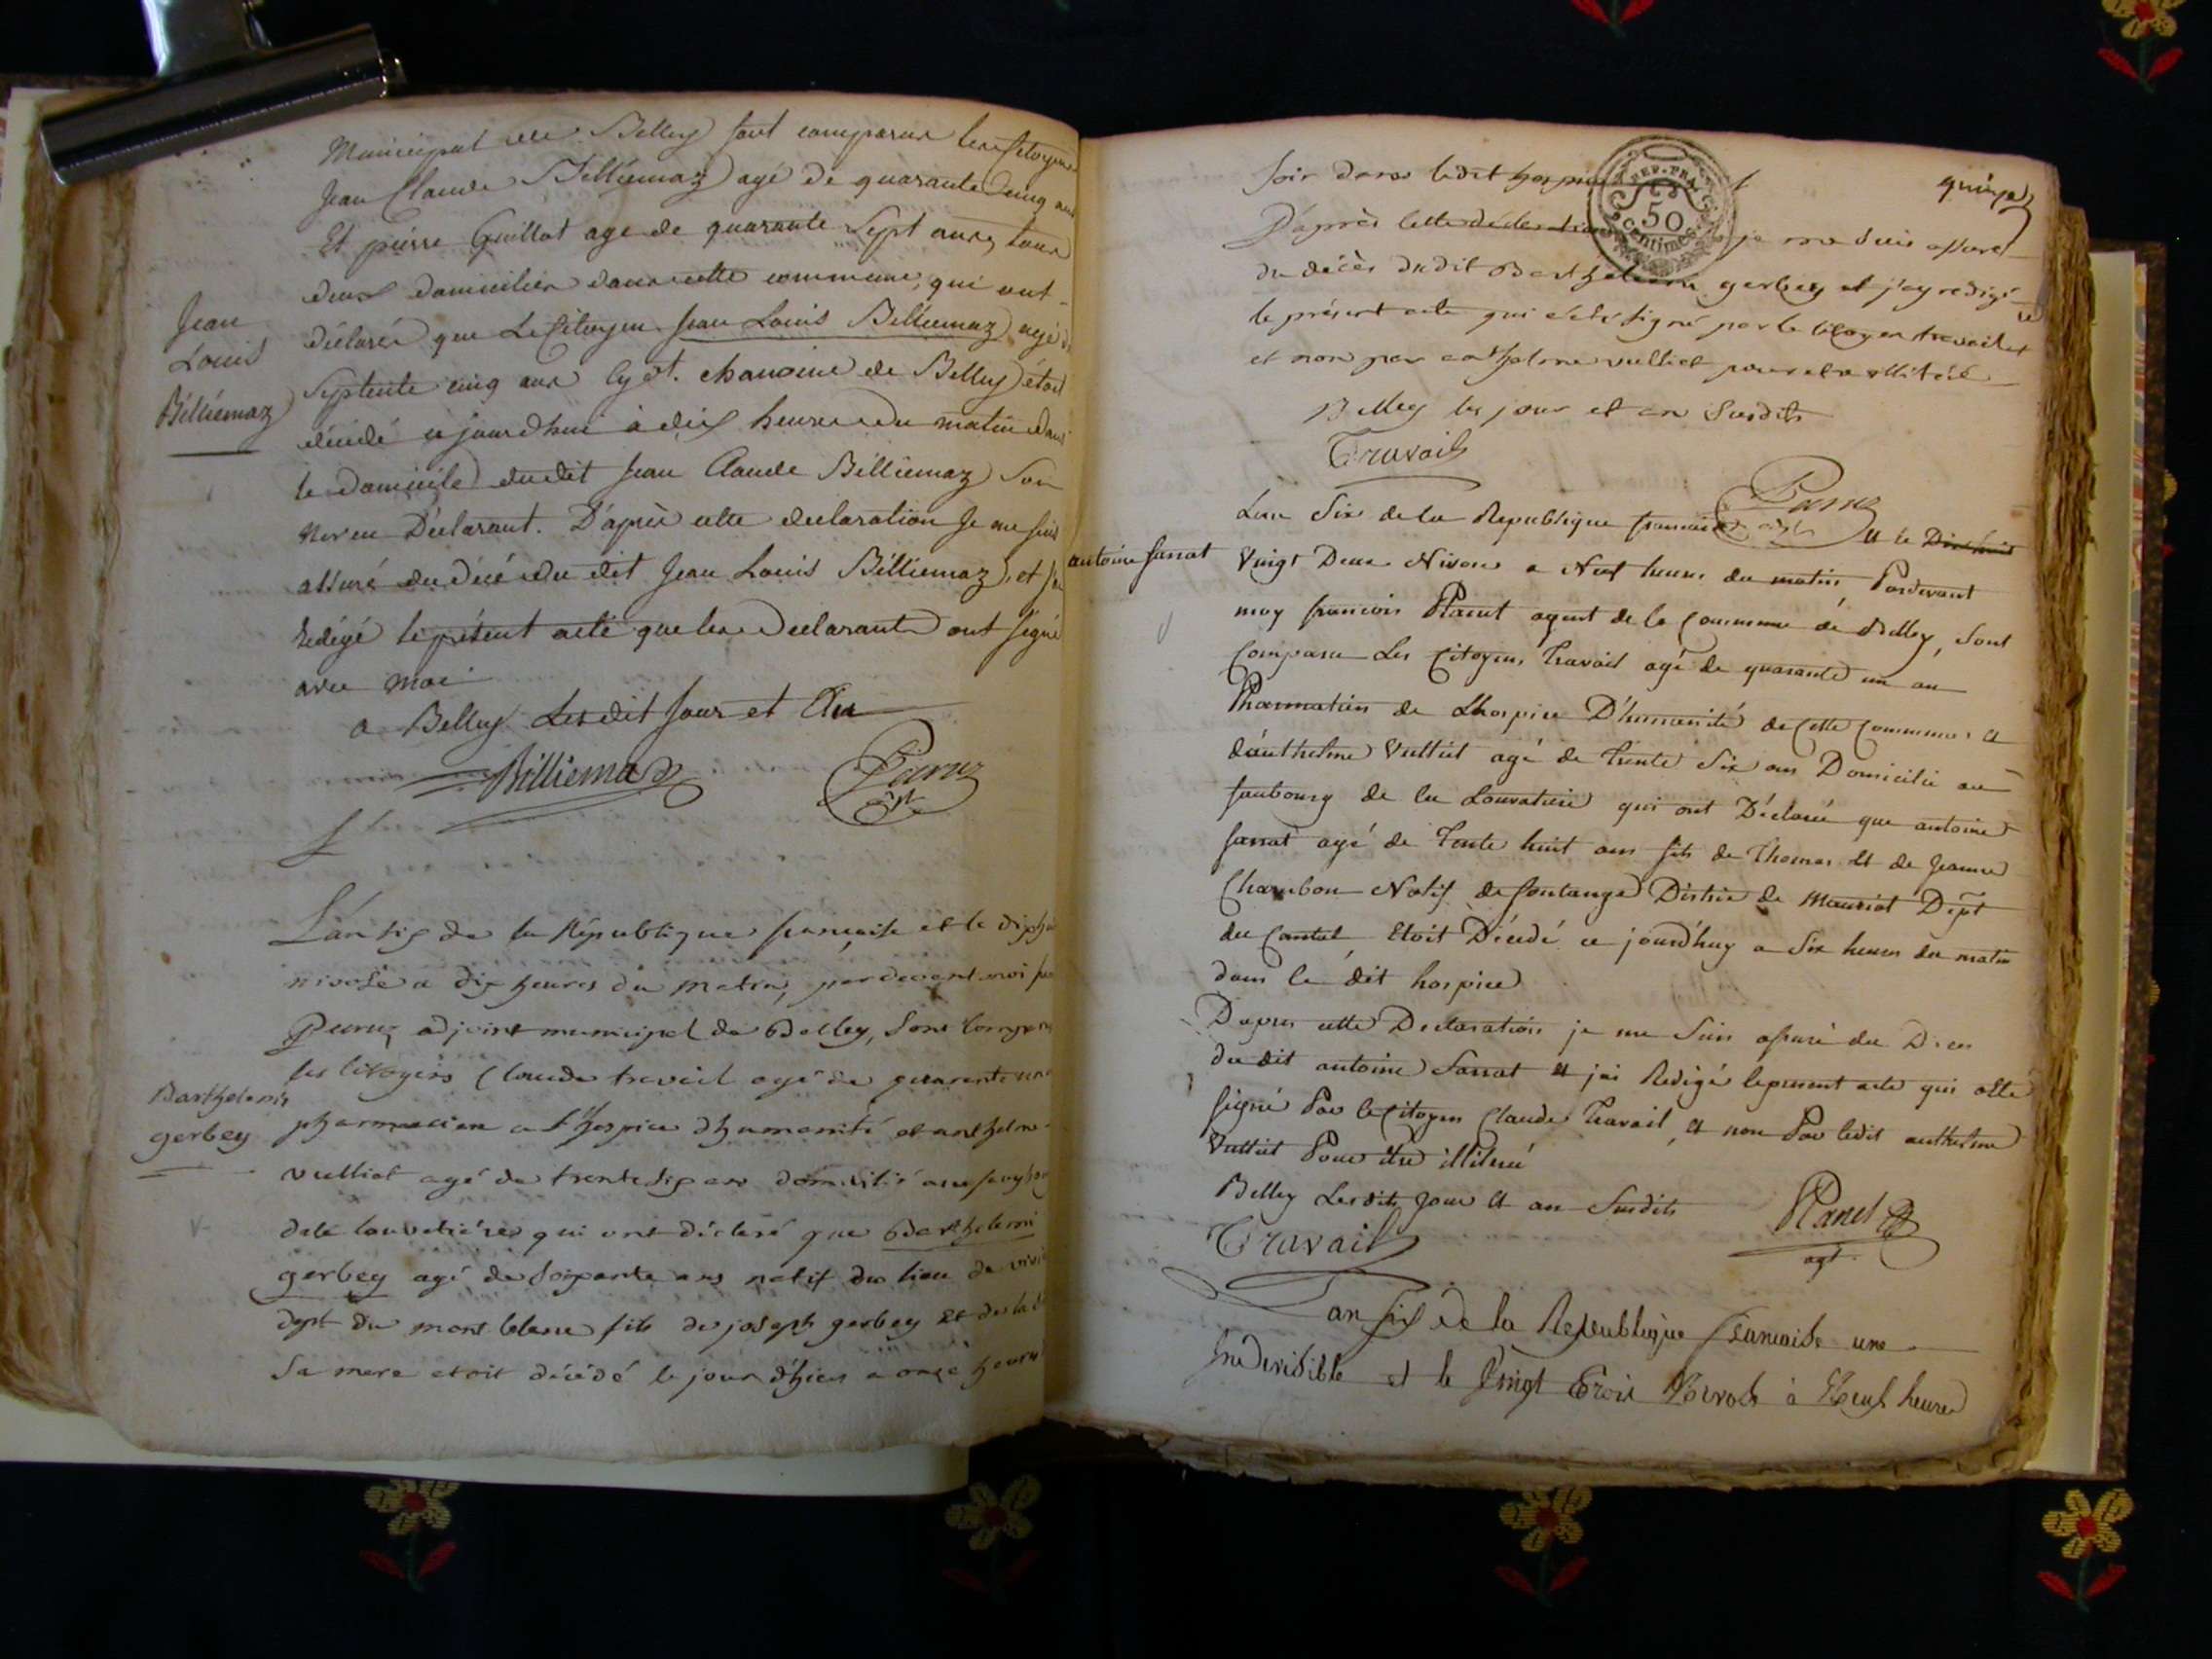 Municipal de Belley sont comparus les Citoyens
Jean Claude Billiemaz agé de quarante cinq ans
Et pierre Guillot age de quarante Sept ans, tous
deux domiciliés dans cette commune, qui ont
déclaré que Le Citoyen Jean Louis Billiemaz agé de
Jean
Louis
Billiemaz
Septente cinq ans chanoine de Belley étoit
décédé ce jourdhui à dix heures du matin dans
le domicile du dit Jean Claude Billiemaz Son
neveu Déclarant. D'après cette declaration Je me suis
assuré du décé du dit Jean Louis Billiemaz, et j'ai
Redigé le présent acte que les Declarants ont signé
avec moi
a Belley Lesdit Jour et An
Billiemaz
Parraz
adjt
L'an six de la République française et le dix huit
nivose a dix heures du matin, par devant moi
Parraz adjoint municipal de Belley, Sont comparus
les citoyens Claude travail agé de quarante un
Barthelemi
gerbey
pharmacien a l'hospice d'humanité et anthelme
vulliet agé de trente six ans domicilié au faubourg
de la louvatiére qui ont déclaré que Barthelemi
gerbey agé de soixante ans natif du lieu de
dept du mont blanc fils de joseph gerbey Et de
Sa mere etoit décédé le jour d'hier a onze heures
quinze
Soir dans ledit hospice
REP. FRA.
50
Centimes
D'après cette déclaration je me suis assuré
du décès dudit Barthelemi gerbey et j'ay redigé
le présent acte qui a été signé par le citoyen travail et
et non par anthelme vulliet pour etre illitéré
Belley les jour et an susdits
Travail
Parraz
adjt
Lan Six de la Republique francaise et le Dix huit
antoine sarrat
Vingt Deux Nivose a Neuf heures du matin, Pardevant
moy francois Planet agent de la Commune de Belley, Sont
Comparu Les Citoyens Travail agé de quarante un an
Pharmatien de Lhospice D'humanité de cette Commune et
d'anthelme Vulliet agé de trente Six ans Domicilié au
faubourg de la Louvatiere qui ont Déclaré que antoine
sarrat agé de trente huit ans fils de Thomas et de Jeanne
Chambon Natif de fontange District de Mauriat Dept
du Cantal Etoit Décédé ce jourd'huy a Six heures du matin
dans le dit hospice
Dapres cette Declaration je me Suis assuré du Déces
du dit antoine Sarrat et jai Redigé le present acte qui a été
signé Par le Citoyen Claude Travail, et non Par ledit anthelme
Vulliet Pour être illiteré
Belley Lesdits jour et an Susdits
Travail
Planet
agt.
Lan six de la Republique francaise une
Indivisible et le Vingt Trois Nivose à Neuf heures